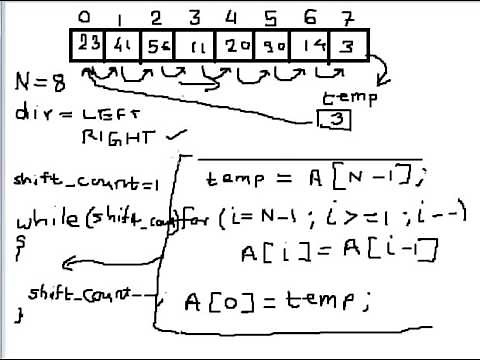 0 1 2 3 4 5 6 7
23 41 56 11 20 90 14 3
N=8
temp
3
dir = LEFT
RIGHT ✓
temp = A[N-1];
shift_count=1
while(shift_coun)for(i=N-1; i>=1; i--)
{
A[i]=A[i-1]
shift_count--;
A[0]=temp;
}